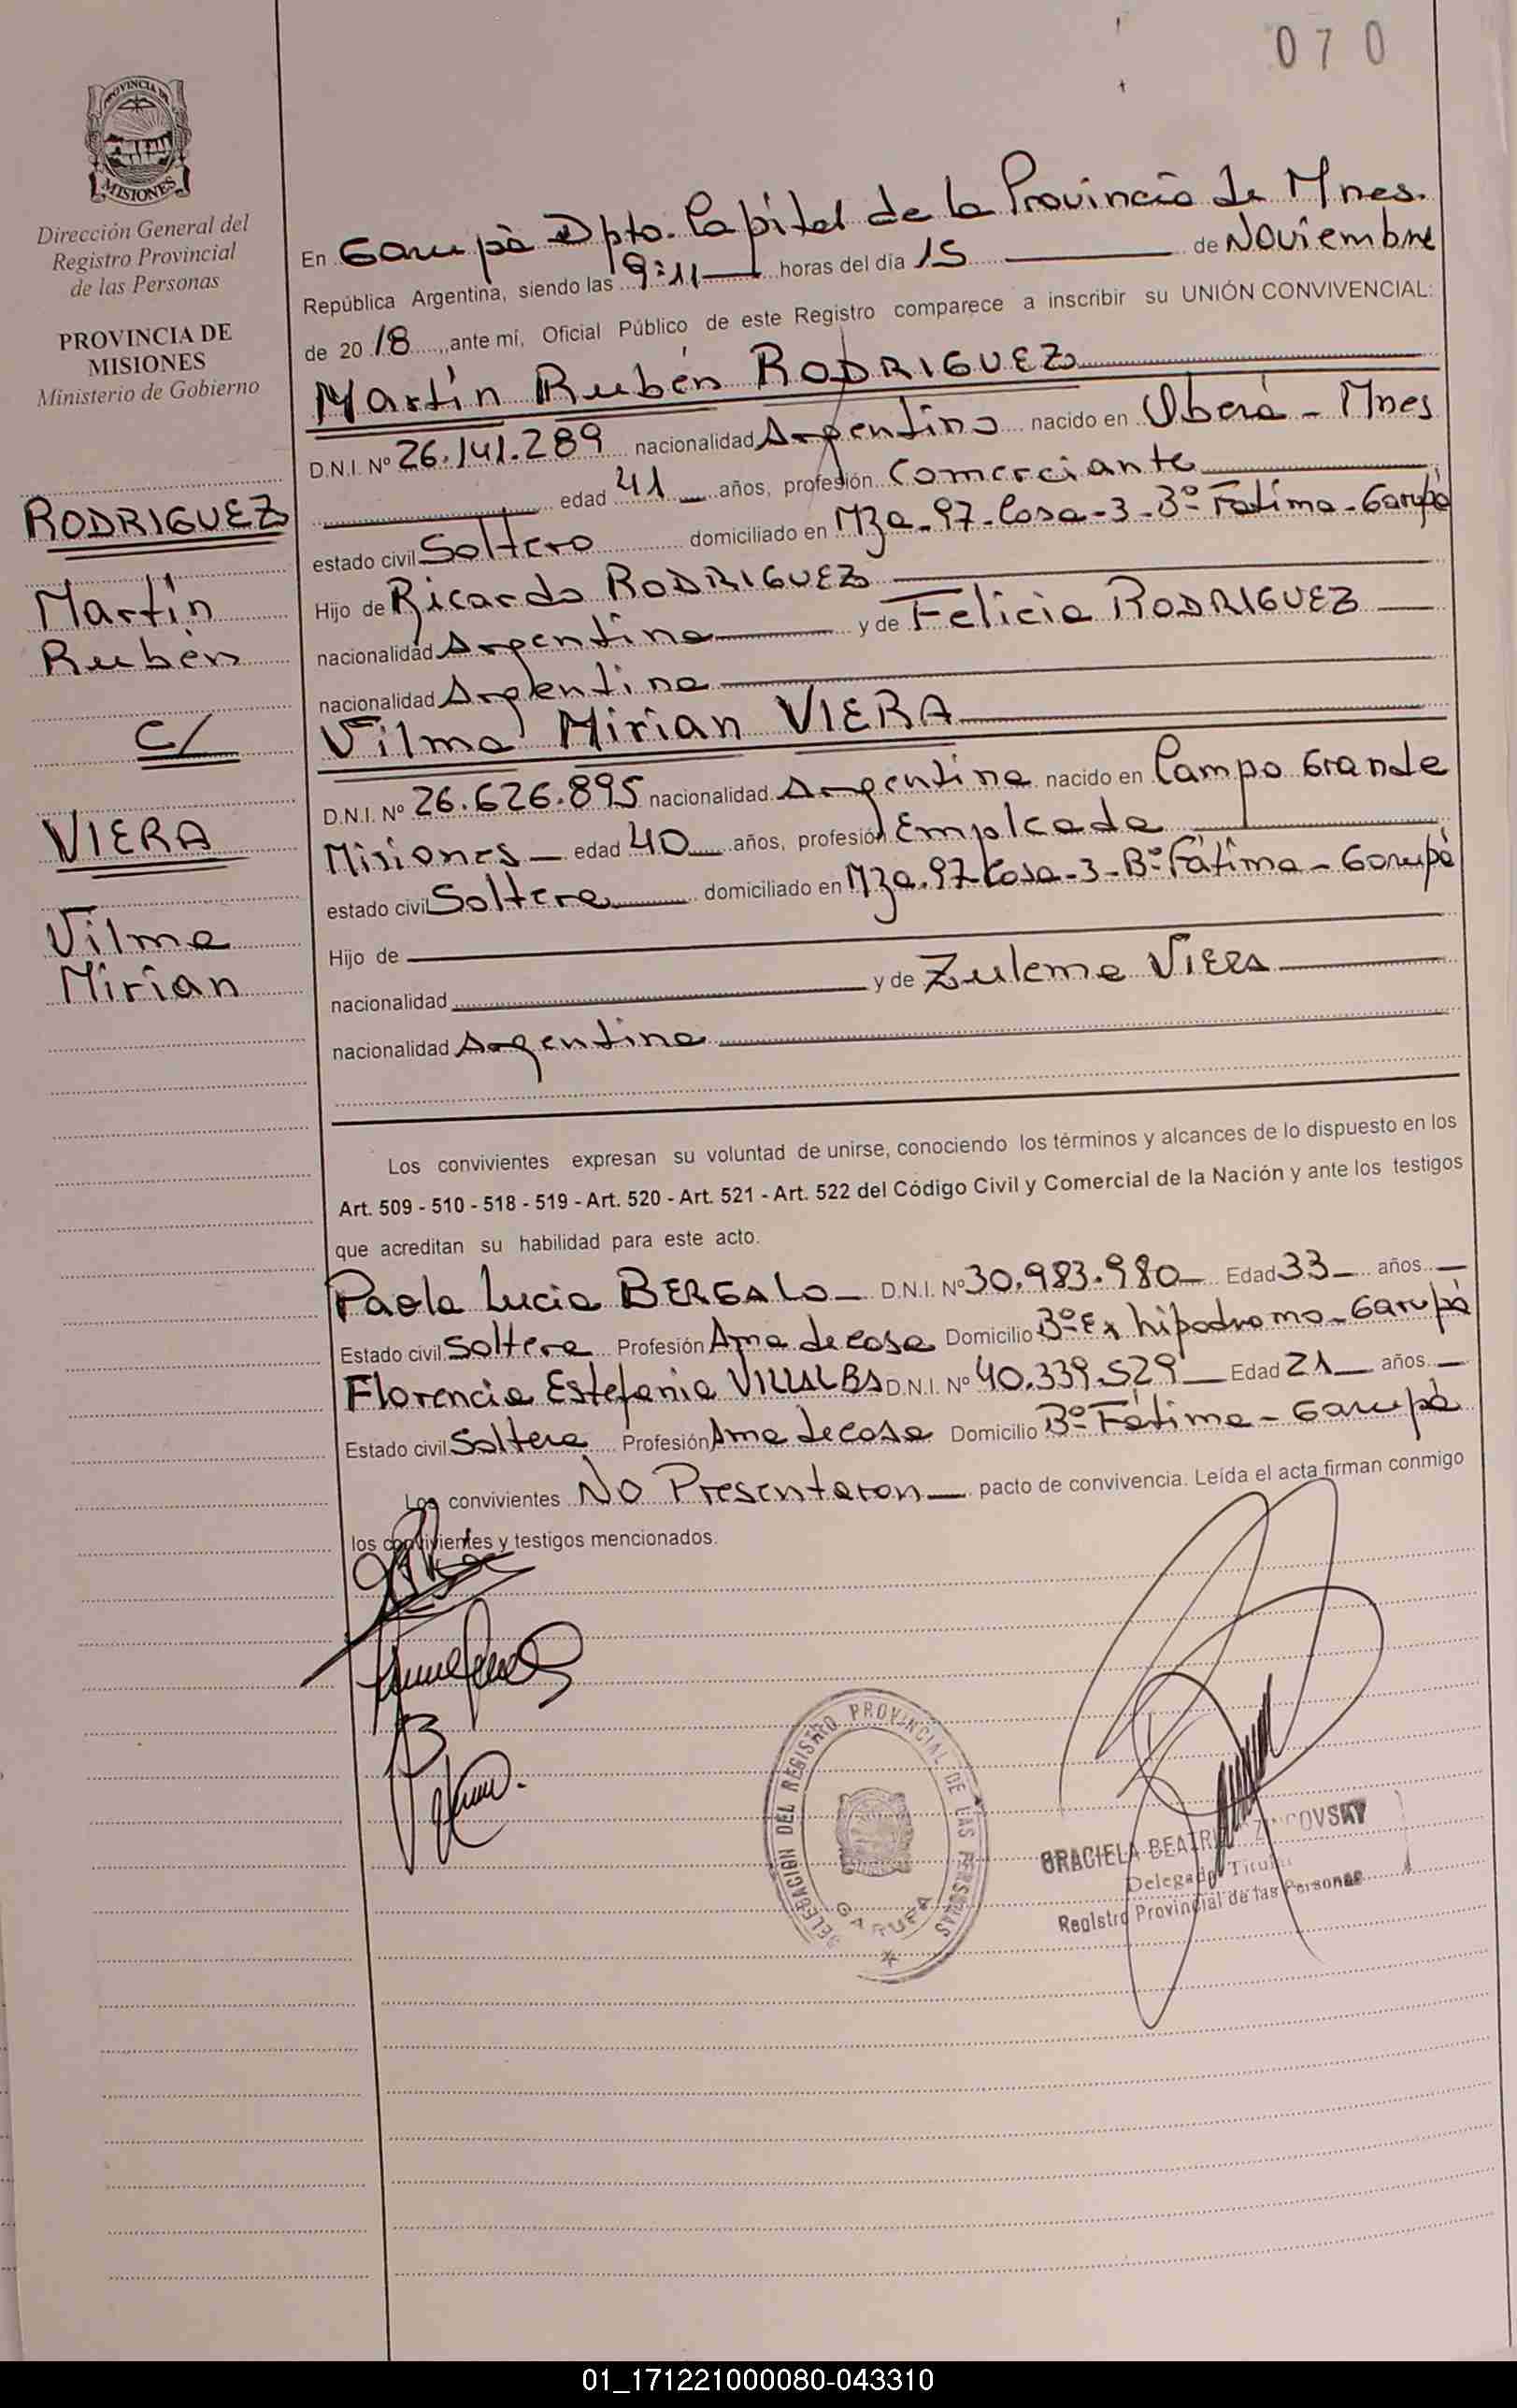 070
PROVINCIA DE
MISIONES
Dirección General del
Registro Provincial
de las Personas
PROVINCIA DE
MISIONES
Ministerio de Gobierno
RODRIGUEZ
Martín
Rubén
C/
VIERA
Vilma
Mirian
En Garupà Dpto. Capital de la Provincia de Mnes.
República Argentina, siendo las 9:11 horas del día 15 de Noviembre
de 20 18 ,ante mí, Oficial Público de este Registro comparece a inscribir su UNIÓN CONVIVENCIAL:
Martín Rubén RODRIGUEZ
D.N.I. Nº 26.141.289 nacionalidad Argentino nacido en Oberá - Mnes
edad 41 años, profesión Comerciante
estado civil Soltero domiciliado en Mza-97-Casa-3-Bº Fatima-Garupà
Hijo de Ricardo RODRIGUEZ
nacionalidad Argentina y de Felicia RODRIGUEZ
nacionalidad Argentina
Vilma Mirian VIERA
D.N.I. Nº 26.626.895 nacionalidad Argentina nacido en Campo Grande
Misiones edad 40 años, profesión Empleada
estado civil Soltera domiciliado en Mza.97-Casa-3-Bº Fátima-Garupà
Hijo de
nacionalidad y de Zulema VIERA
nacionalidad Argentina
Los convivientes expresan su voluntad de unirse, conociendo los términos y alcances de lo dispuesto en los
Art. 509 - 510 - 518 - 519 - Art. 520 - Art. 521 - Art. 522 del Código Civil y Comercial de la Nación y ante los testigos
que acreditan su habilidad para este acto.
Paola Lucia BERGALO D.N.I. Nº 30.983.980 Edad 33 años
Estado civil Soltera Profesión Ama de casa Domicilio Bº Ex hipodromo-Garupà
Florencia Estefania VILLALBA D.N.I. Nº 40.339.529 Edad 21 años
Estado civil Soltera Profesión Ama de casa Domicilio Bº Fátima-Garupà
Los convivientes No Presentaron pacto de convivencia. Leída el acta firman conmigo
los convivientes y testigos mencionados.
DELEGACIÓN DEL REGISTRO PROVINCIAL DE LAS PERSONAS
GARUPA
GRACIELA
Delegada Titular
Registro Provincial de las Personas
01_171221000080-043310